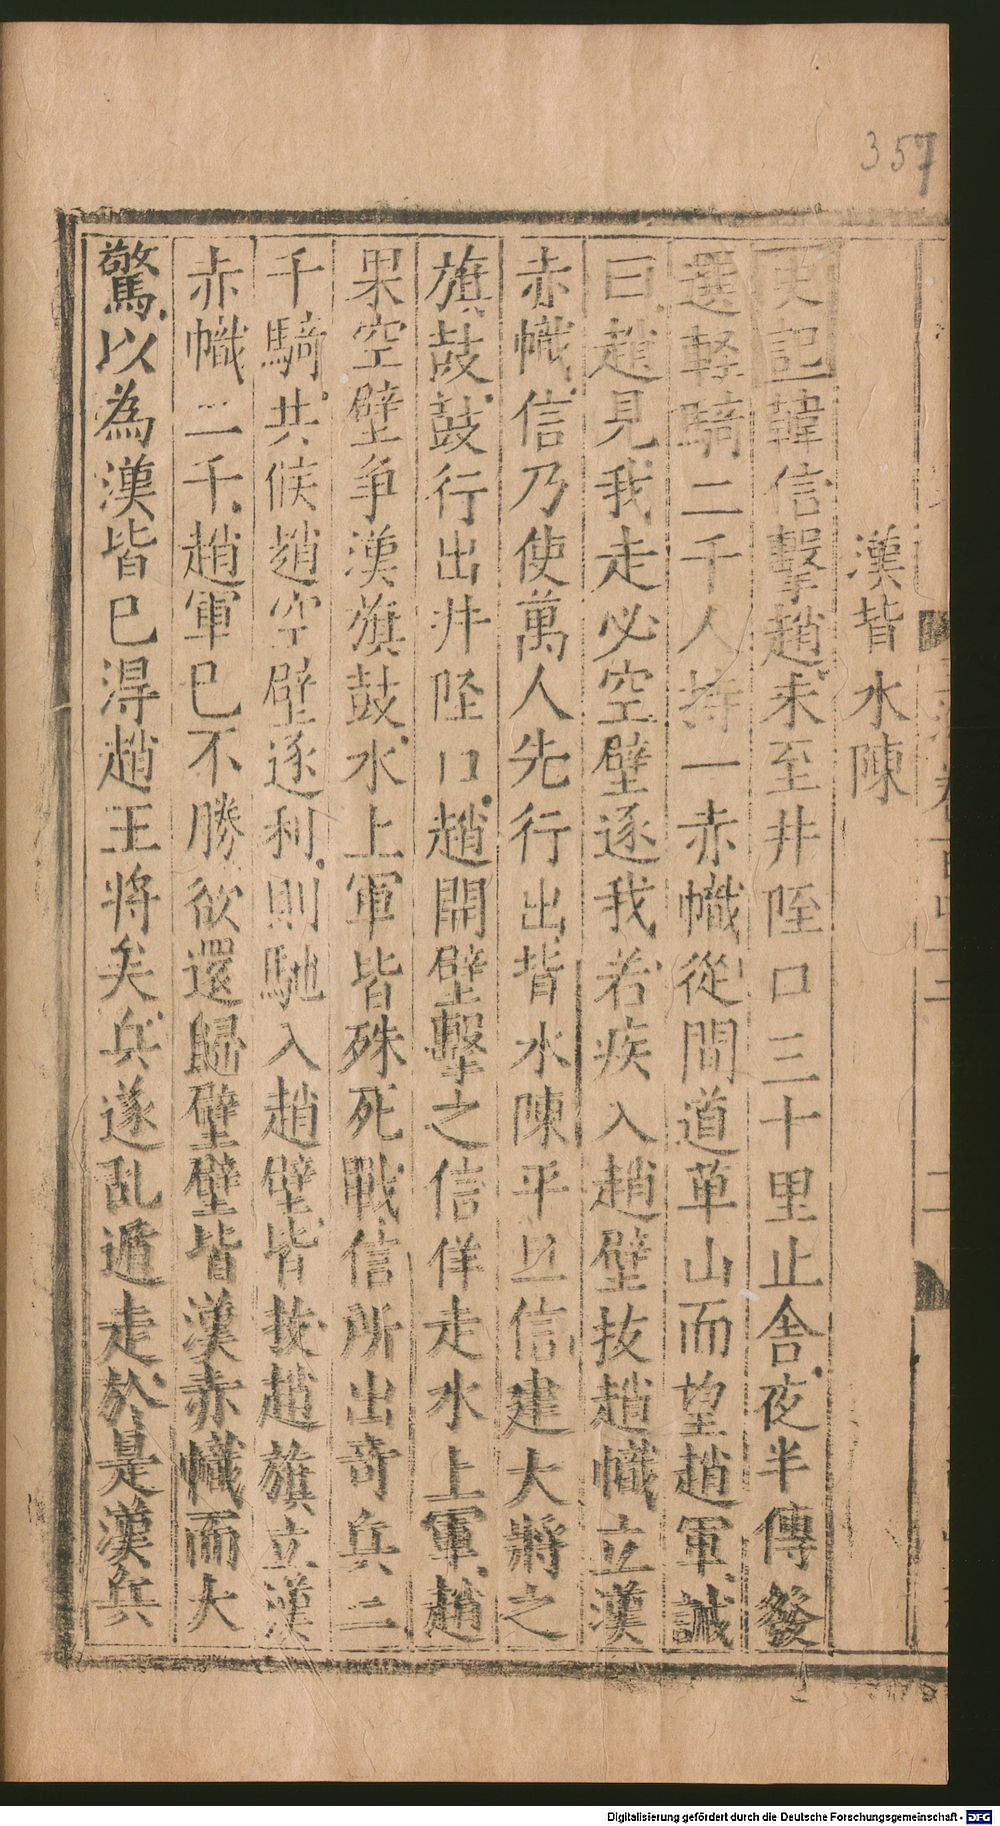 357
漢背水陳
史記韓信擊趙未至井陘口三十里止舍夜半傳發
選輕騎二千人持一赤幟從間道萆山而望趙軍誡
曰趙見我走必空壁逐我若疾入趙壁拔趙幟立漢
赤幟信乃使萬人先行出背水陳平旦信建大將之
旗鼓鼓行出井陘口趙開壁擊之信佯走水上軍趙
果空壁爭漢旗鼓水上軍皆殊死戰信所出奇兵二
千騎共候趙空壁逐利則馳入趙壁皆拔趙旗立漢
赤幟二千趙軍已不勝欲還歸壁壁皆漢赤幟而大
驚以為漢皆已得趙王將矣兵遂亂遁走於是漢兵
Digitalisierung gefördert durch die Deutsche Forschungsgemeinschaft - DFG